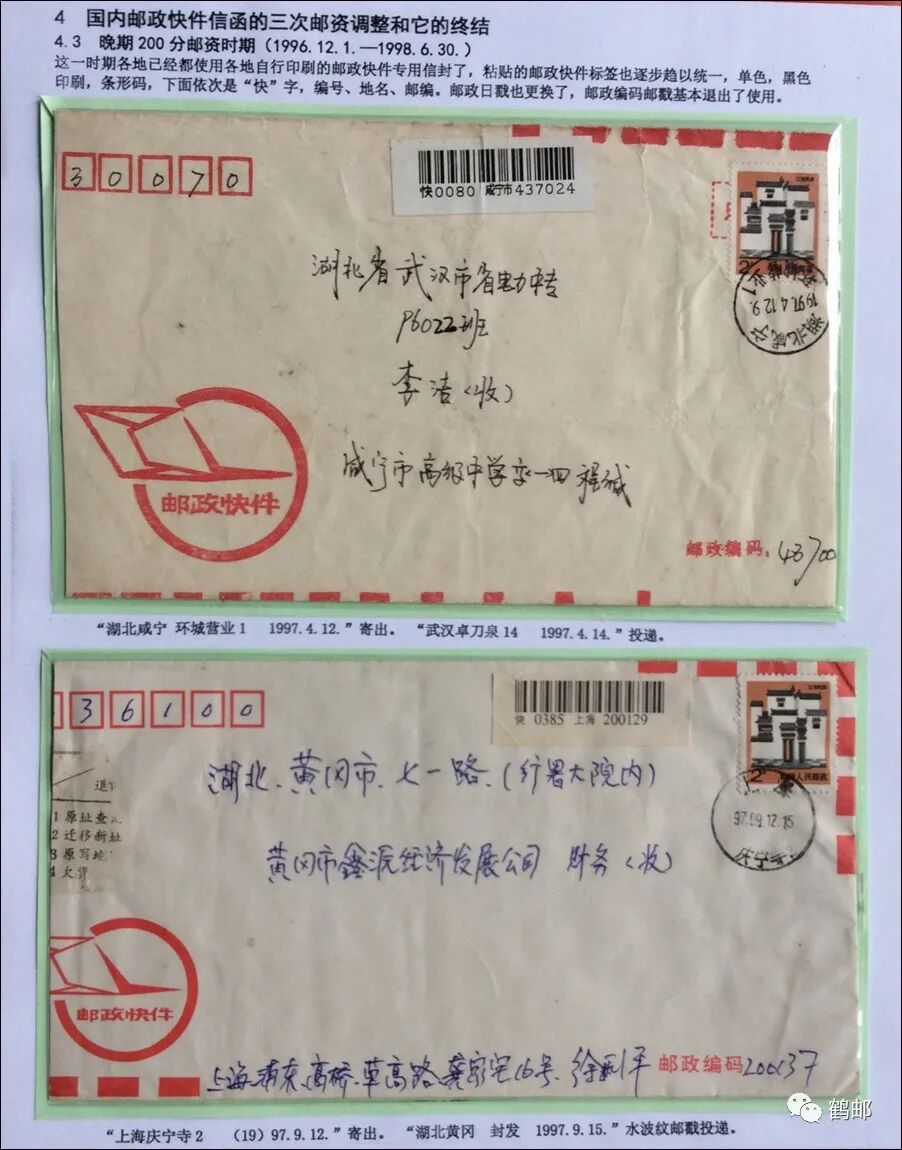 4 国内邮政快件信函的三次邮资调整和它的终结
4.3 晚期200分邮资时期（1996.12.1.—1998.6.30.）
这一时期各地已经都使用各地自行印刷的邮政快件专用信封了，粘贴的邮政快件标签也逐步趋以统一，单色，黑色
印刷，条形码，下面依次是“快”字，编号、地名、邮编。邮政日戳也更换了，邮政编码邮戳基本退出了使用。
30070
快0080 咸宁市437024
湖北省武汉市省电力中专
P6022班
李洁（收）
咸宁市高级中学
邮政快件
邮政编码：43700
1997.4.12.9.
湖北咸宁
“湖北咸宁 环城营业1 1997.4.12.”寄出。 “武汉卓刀泉14 1997.4.14.”投递。
36100
快 0385 上海 200129
湖北、黄冈市、七一路、（行署大院内）
黄冈市鑫派经济发展公司 财务（收）
2
中国人民邮政
97.09.12.15
庆宁寺
退
1 原址查
2 迁移新址
3 原写地
4 欠资
邮政快件
上海浦东高桥草高路龚家宅16号
邮政编码200137
鹤邮
“上海庆宁寺2 （19）97.9.12.”寄出。 “湖北黄冈 封发 1997.9.15.”水波纹邮戳投递。